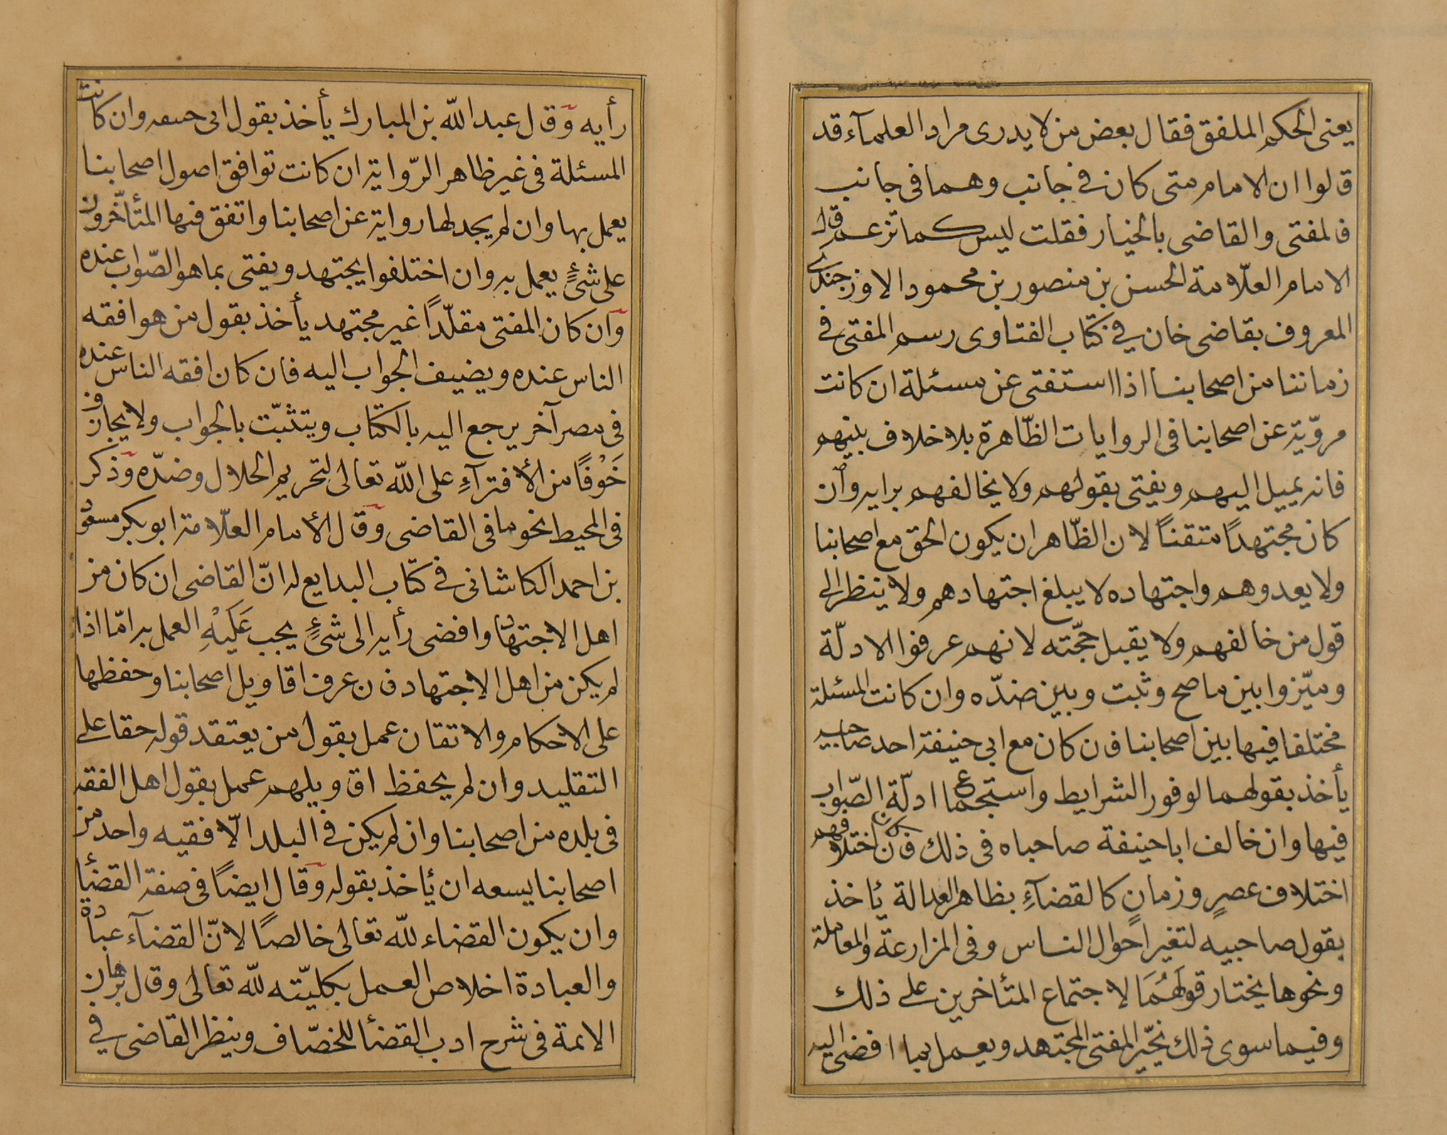 يعنى الحكم الملفق فقال بعض من لا يدرى مراد العلمآء قد
قالوا ان الامام متى كان فى جانب وهما فى جانب
فالمفتى والقاضى بالخيار فقلت ليس كما تزعم قال
الامام العلّامة الحسن بن منصور بن محمود الاوزجندى
المعروف بقاضى خان فى كتاب الفتاوى رسم المفتى فى
زماننا من اصحابنا اذا استفتى عن مسئلة ان كانت
مرويّة عن اصحابنا فى الروايات الظّاهرة بلا خلاف بينهم
فانه يميل اليهم ويفتى بقولهم ولا يخالفهم برايه وان
كان مجتهدًا متقنًا لان الظّاهر ان يكون الحق مع اصحابنا
ولا يعدوهم واجتهاده لا يبلغ اجتهادهم ولا ينظر الى
قول من خالفهم ولا يقبل حجّته لانهم عرفوا الادلّة
وميّزوا بين ما صح وثبت وبين ضدّه وان كانت المسئلة
مختلفا فيها بين اصحابنا فان كان مع ابى حنيفة احد صاحبيه
يأخذ بقولهما لوفور الشرايط واستجماع ادلّة الصّواب
فيها وان خالف ابا حنيفة صاحباه فى ذلك فان كان اختلافهم
اختلاف عصرٍ وزمانٍ كالقضآءِ بظاهر العدالة يأخذ
بقول صاحبيه لتغير احوال الناس وفى المزارعة والمعاملة
ونحوها يختار قولَهُمَا لاجتماع المتأخرين على ذلك
وفيما سوى ذلك يخيّر المفتى المجتهد ويعمل بما افضى اليه
رأيه وقال عبد الله بن المبارك يأخذ بقول ابى حنيفه وان كانت
المسئلة فى غير ظاهر الرّواية ان كانت توافق اصول اصحابنا
يعمل بها وان لم يجد لها رواية عن اصحابنا واتفق فيها المتأخّرون
على شئٍ يعمل به وان اختلفوا يجتهد ويفتى بما هو الصّواب عنده
وان كان المفتى مقلّدًا غير مجتهد يأخذ بقول من هو افقه
الناس عنده ويضيف الجواب اليه فان كان افقه الناس عنده
فى مصر آخر يرجع اليه بالكتاب ويتثبّت بالجواب ولا يجازف
خَوْفًا من الأفترآءِ على الله تعالى لتحريم الحلال وضدّه وذكر
فى المحيط نحو ما فى القاضى وقال الأمام العلّامة ابو بكر مسعود
بن احمد الكاشانى فى كتاب البدايع له انّ القاضى ان كان من
اهل الاجتهاد وافضى رأيه الى شئٍ يجب عَلَيْهِ العمل به امّا اذا
لم يكن من اهل الاجتهاد فان عرف اقاويل اصحابنا وحفظها
على الاحكام والاتقان عمل بقول من يعتقد قوله حقا على
التقليد وان لم يحفظ اقاويلهم عمل بقول اهل الفقه
فى بلده من اصحابنا وان لم يكن فى البلد الّا فقيه واحد من
اصحابنا يسعه ان يأخذ بقوله وقال ايضًا فى صفة القضأيا
وان يكون القضاء لله تعالى خالصًا لانّ القضآء عبادة
والعبادة اخلاص العمل بكليّته لله تعالى وقال برهان
الائمة فى شرح ادب القضأ للخصّاف وينظر القاضى فى